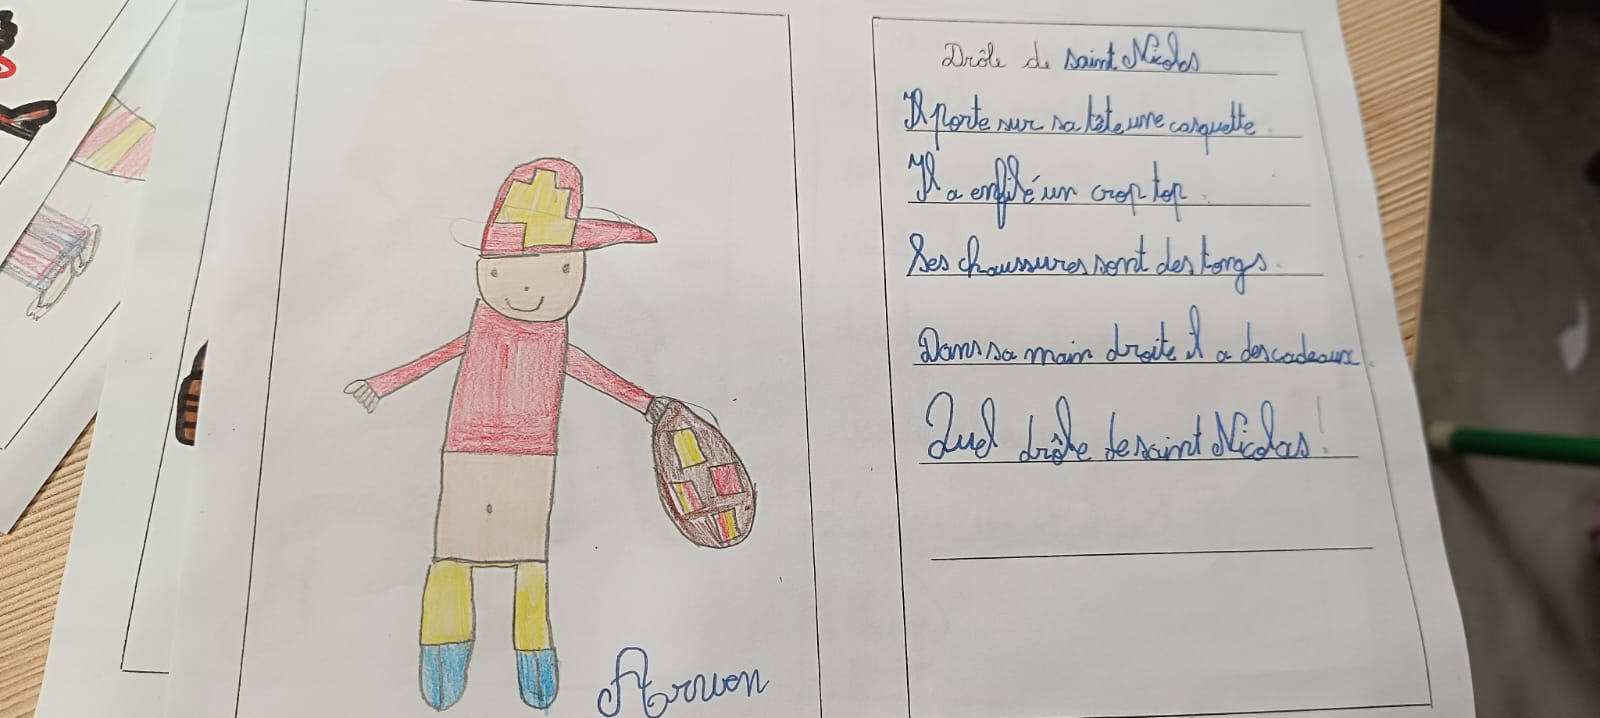 Drôle de saint Nicolas
Il porte sur sa tête une casquette.
Il a enfilé un crop top.
Ses chaussures sont des tongs.
Dans sa main droite il a des cadeaux.
Quel drôle de saint Nicolas !
Arwen